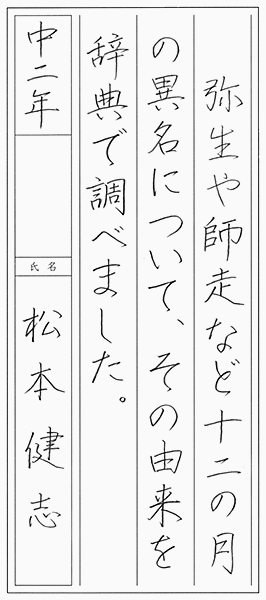 弥生や師走など十二の月
の異名について、その由来を
辞典で調べました。
中二年
氏名
松本健志